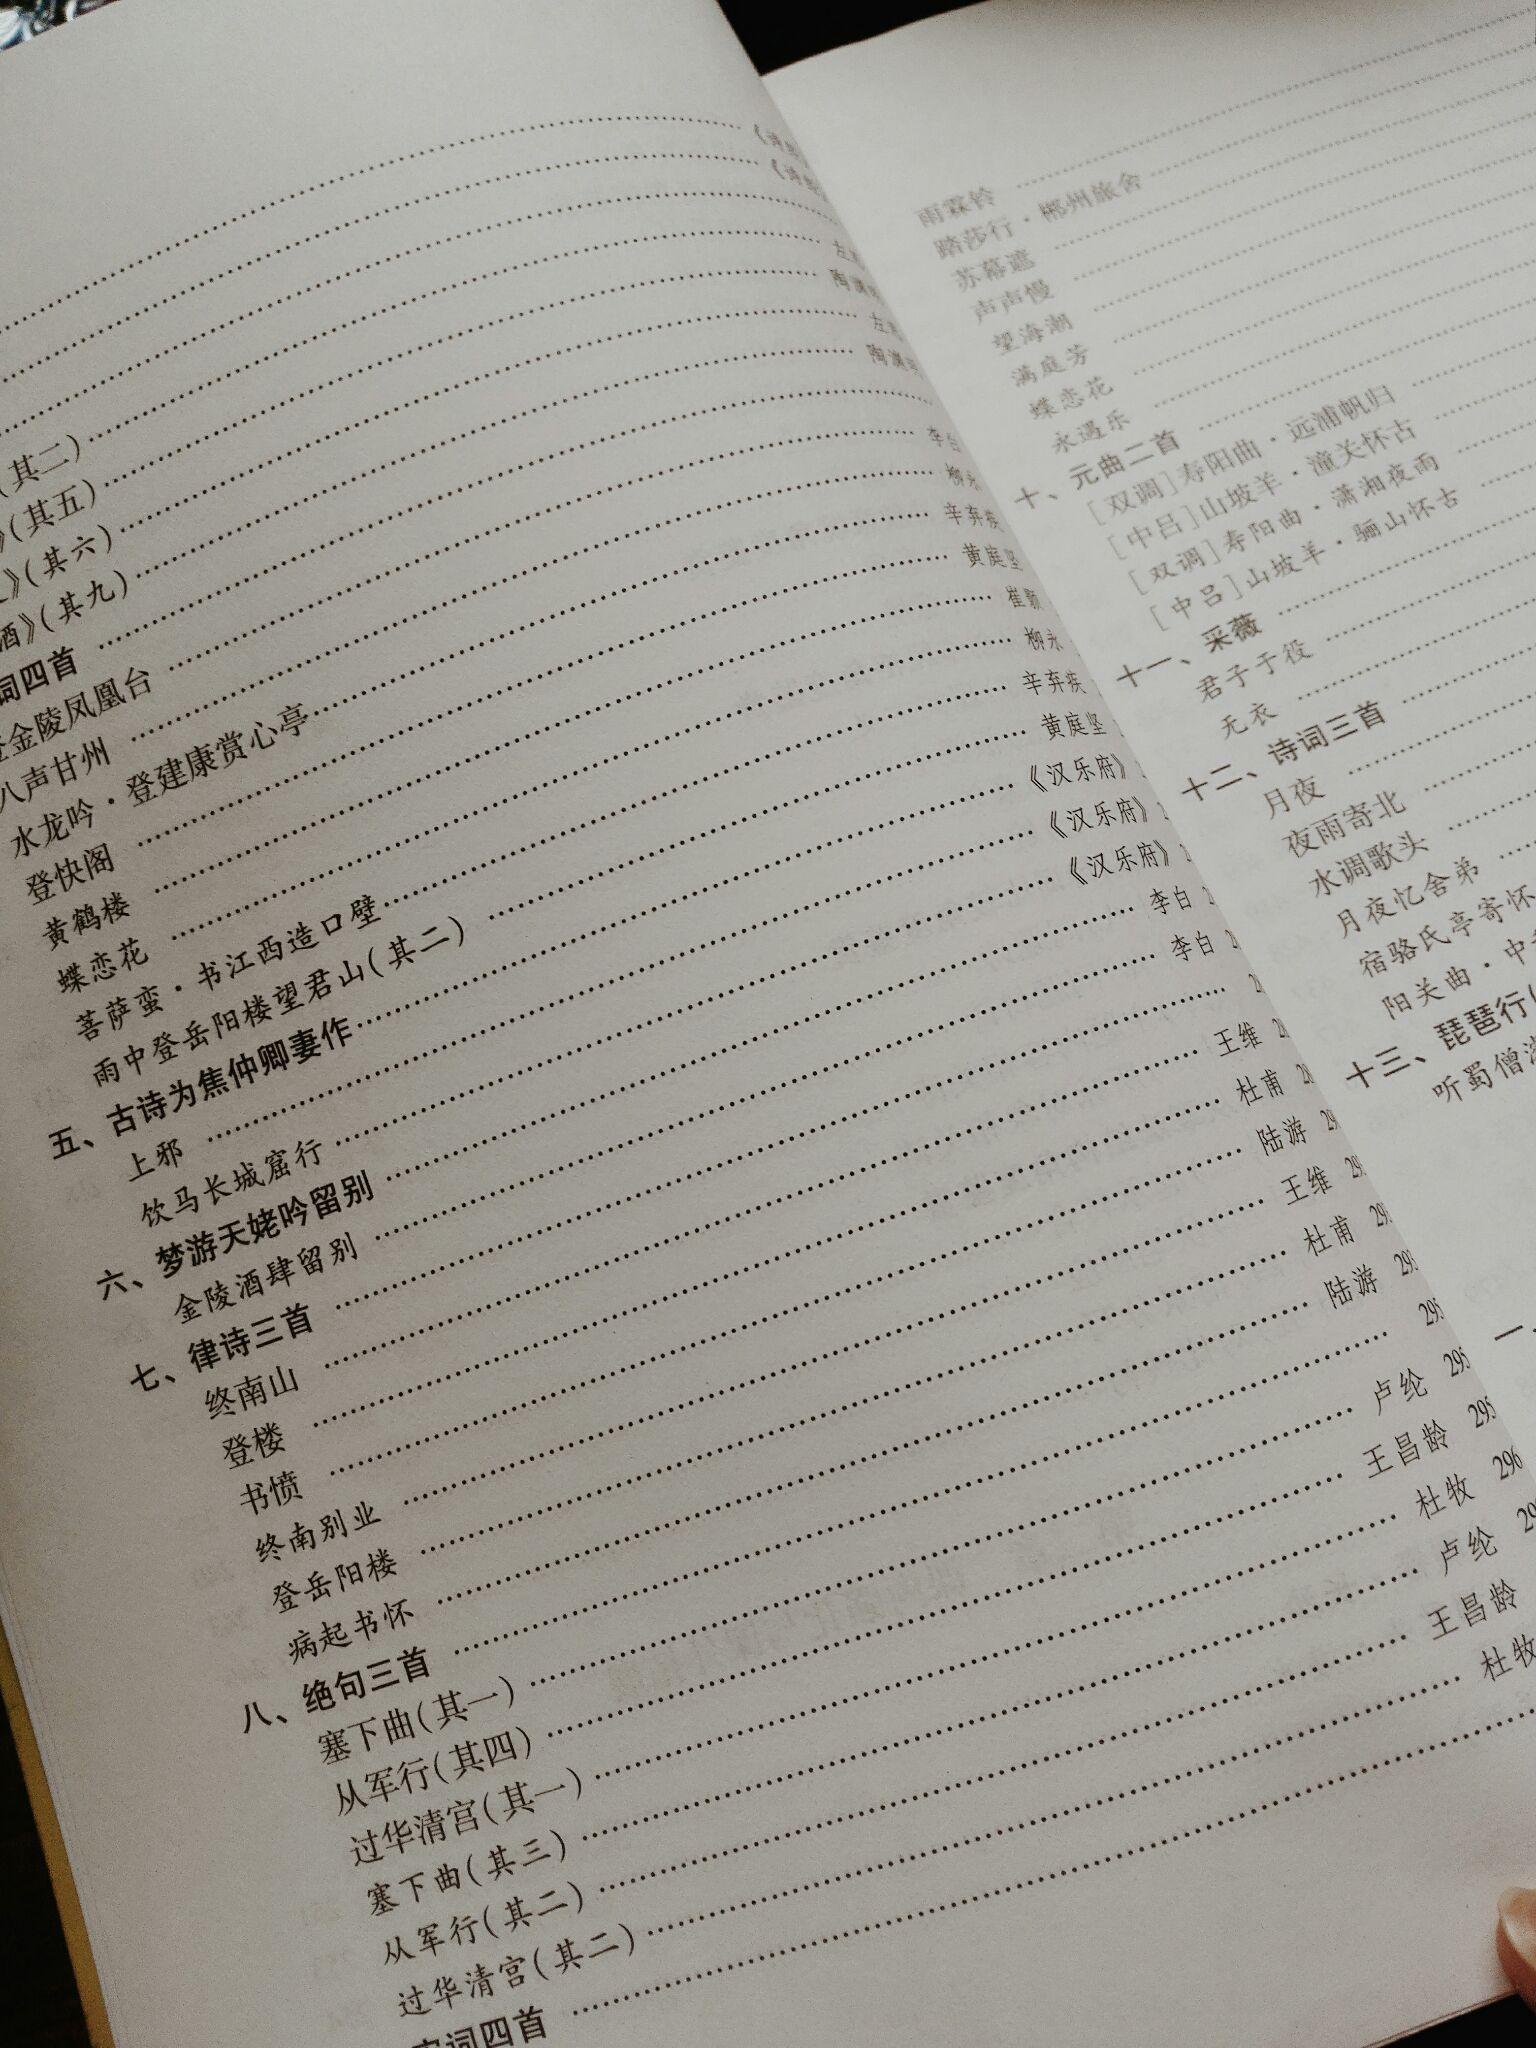 《诗经
《诗经
左思
(其二) 陶渊明
》(其五) 左思
》(其六) 陶渊明
酒》(其九)
词四首 李白
登金陵凤凰台 柳永
八声甘州 辛弃疾
水龙吟·登建康赏心亭 黄庭坚
登快阁 崔颢
黄鹤楼 柳永
蝶恋花 辛弃疾
菩萨蛮·书江西造口壁 黄庭坚
雨中登岳阳楼望君山(其二) 《汉乐府》
五、古诗为焦仲卿妻作 《汉乐府》
上邪 《汉乐府》
饮马长城窟行 李白
六、梦游天姥吟留别 李白
金陵酒肆留别
七、律诗三首 王维
终南山 杜甫
登楼 陆游
书愤 王维
终南别业 杜甫
登岳阳楼 陆游
病起书怀 295
八、绝句三首 卢纶 295
塞下曲(其一) 王昌龄 295
从军行(其四) 杜牧 296
过华清宫(其一) 卢纶
塞下曲(其三) 王昌龄
从军行(其二) 杜牧
过华清宫(其二)
宋词四首
雨霖铃
踏莎行·郴州旅舍
苏幕遮
声声慢
望海潮
满庭芳
蝶恋花
永遇乐
十、元曲二首
[双调]寿阳曲·远浦帆归
[中吕]山坡羊·潼关怀古
[双调]寿阳曲·潇湘夜雨
[中吕]山坡羊·骊山怀古
十一、采薇
君子于役
无衣
十二、诗词三首
月夜
夜雨寄北
水调歌头
月夜忆舍弟
宿骆氏亭寄怀
阳关曲·中
十三、琵琶行(
听蜀僧
一、